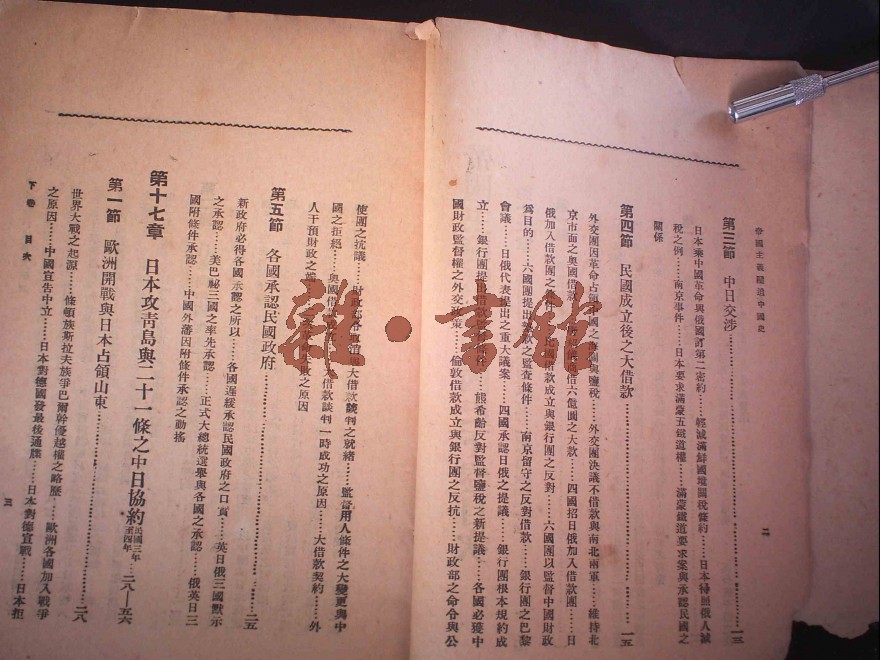 帝國主義壓迫中國史
二
第三節 中日交涉……一三
日本乘中國革命與俄國訂第二密約……輕減滿鮮國境關稅條約……日本待無俄人減
稅之例……南京事件……日本要求滿蒙五鐵道權……滿蒙鐵道要求案與承認民國之
關係
第四節 民國成立後之大借款……一五
外交團因革命占領中國之 關與鹽稅……外交團決議不借款與南北兩軍……維持北
京市面之奧國借款…… 借六億圓之大款……四國招日俄加入借款團……日
俄加入借款團之條件…… 比國借款成立與銀行團之反對……六國團以監督中國財政
爲目的……六國團提出 款之監查條件……南京留守之反對借款……銀行團之巴黎
會議……日俄代表提出之重大議案……四國承認日俄之提議……銀行團根本規約成
立……銀行團提出借款 條件……熊希齡反對監督鹽稅之新提議……各國必獲中
國財政監督權之外交政策……倫敦借款成立與銀行團之反抗……財政部之命令與公
使團之抗議……財政部 取消 大借款談判之就緒……監督用人條件之大變更與中
國之拒絕……奧國借 借款談判一時成功之原因……大借款契約……外
人干預財政之 敗之原因
第五節 各國承認民國政府……二五
新政府必得各國承認之所以……各國遲緩承認民國政府之口實……英日俄三國默示
之承認……美巴祕三國之率先承認……正式大總統選舉與各國之承認……俄英日三
國附條件承認……中國外藩因附條件承認之動搖
第十七章 日本攻靑島與二十一條之中日協約民國三年至四年……二八—五六
第一節 歐洲開戰與日本占領山東……二八
世界大戰之起源……條頓族斯拉夫族爭巴爾幹優越權之略歷……歐洲各國加入戰爭
之原因……中國宣告中立……日本對德國發最後通牒……日本對德宣戰……日本拒
下卷 目次
三
雜·書館